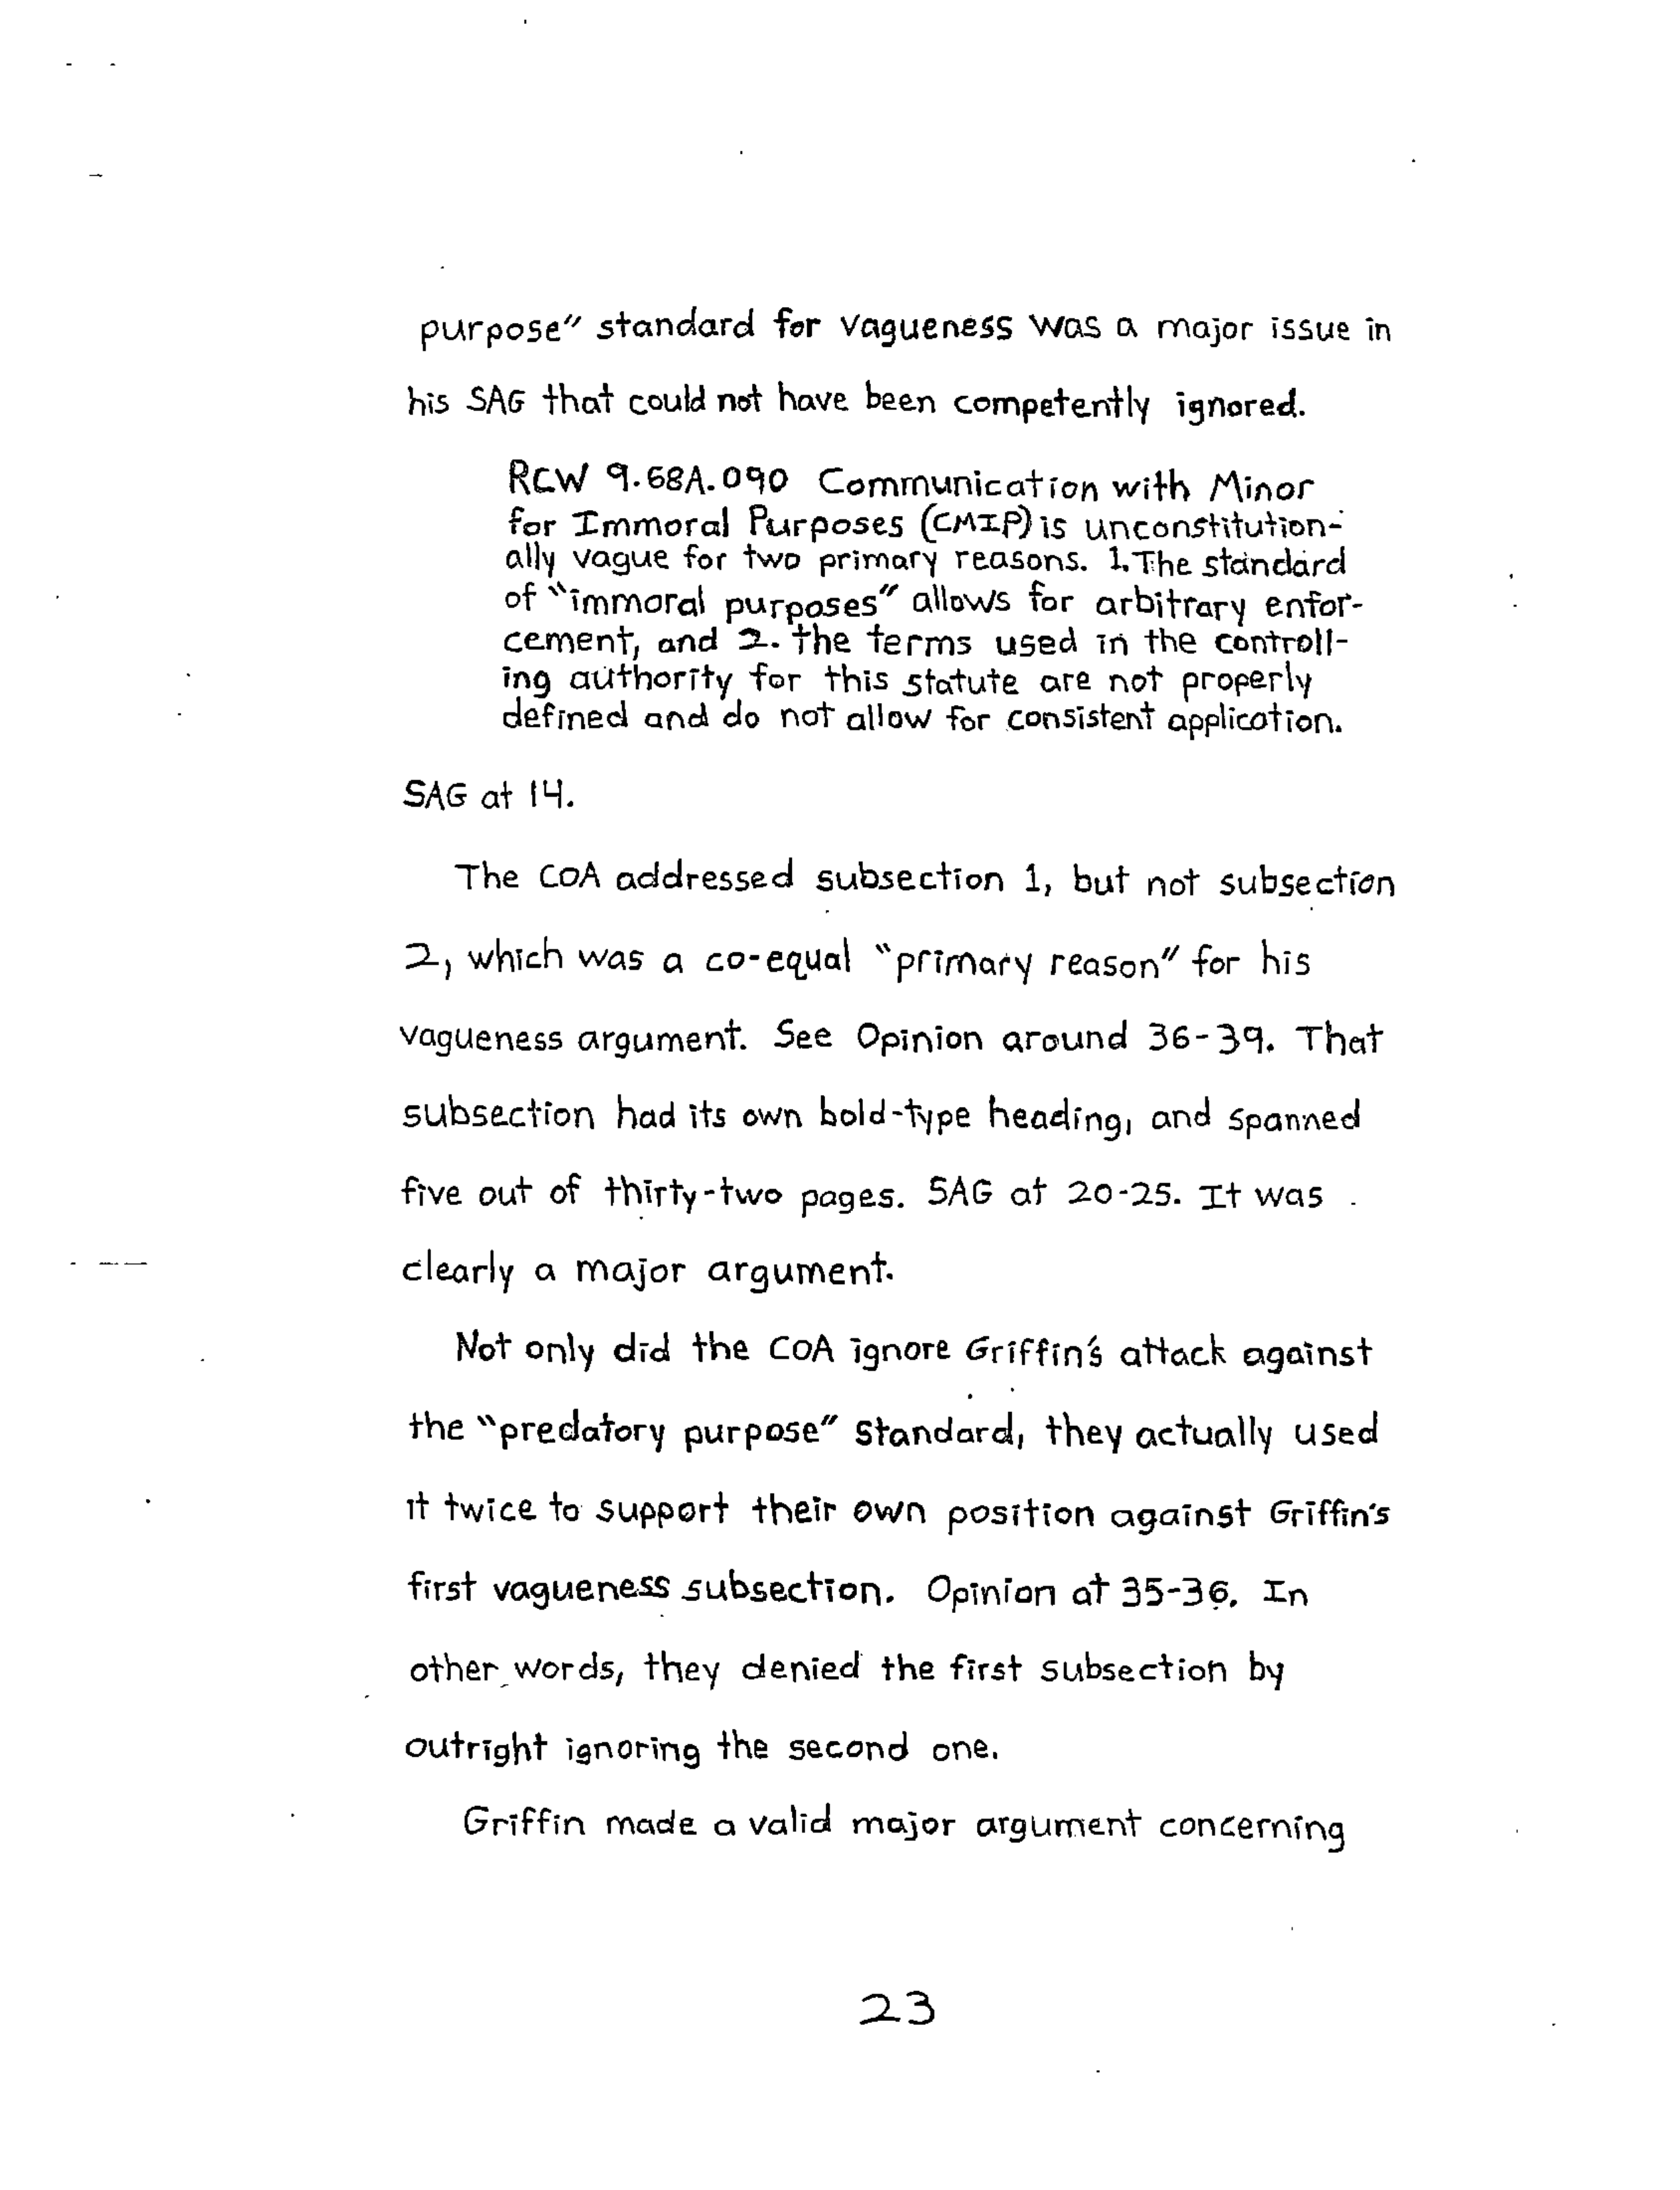 purpose" standard for vagueness was a major issue in
his SAG that could not have been competently ignored.
RCW 9.68A.090 Communication with Minor
for Immoral Purposes (CMIP) is unconstitution-
ally vague for two primary reasons. 1. The standard
of "immoral purposes" allows for arbitrary enfor-
cement, and 2. the terms used in the controll-
ing authority for this statute are not properly
defined and do not allow for consistent application.
SAG at 14.
The COA addressed subsection 1, but not subsection
2, which was a co-equal "primary reason" for his
vagueness argument. See Opinion around 36-39. That
subsection had its own bold-type heading, and spanned
five out of thirty-two pages. SAG at 20-25. It was
clearly a major argument.
Not only did the COA ignore Griffin's attack against
the "predatory purpose" standard, they actually used
it twice to support their own position against Griffin's
first vagueness subsection. Opinion at 35-36. In
other words, they denied the first subsection by
outright ignoring the second one.
Griffin made a valid major argument concerning
23